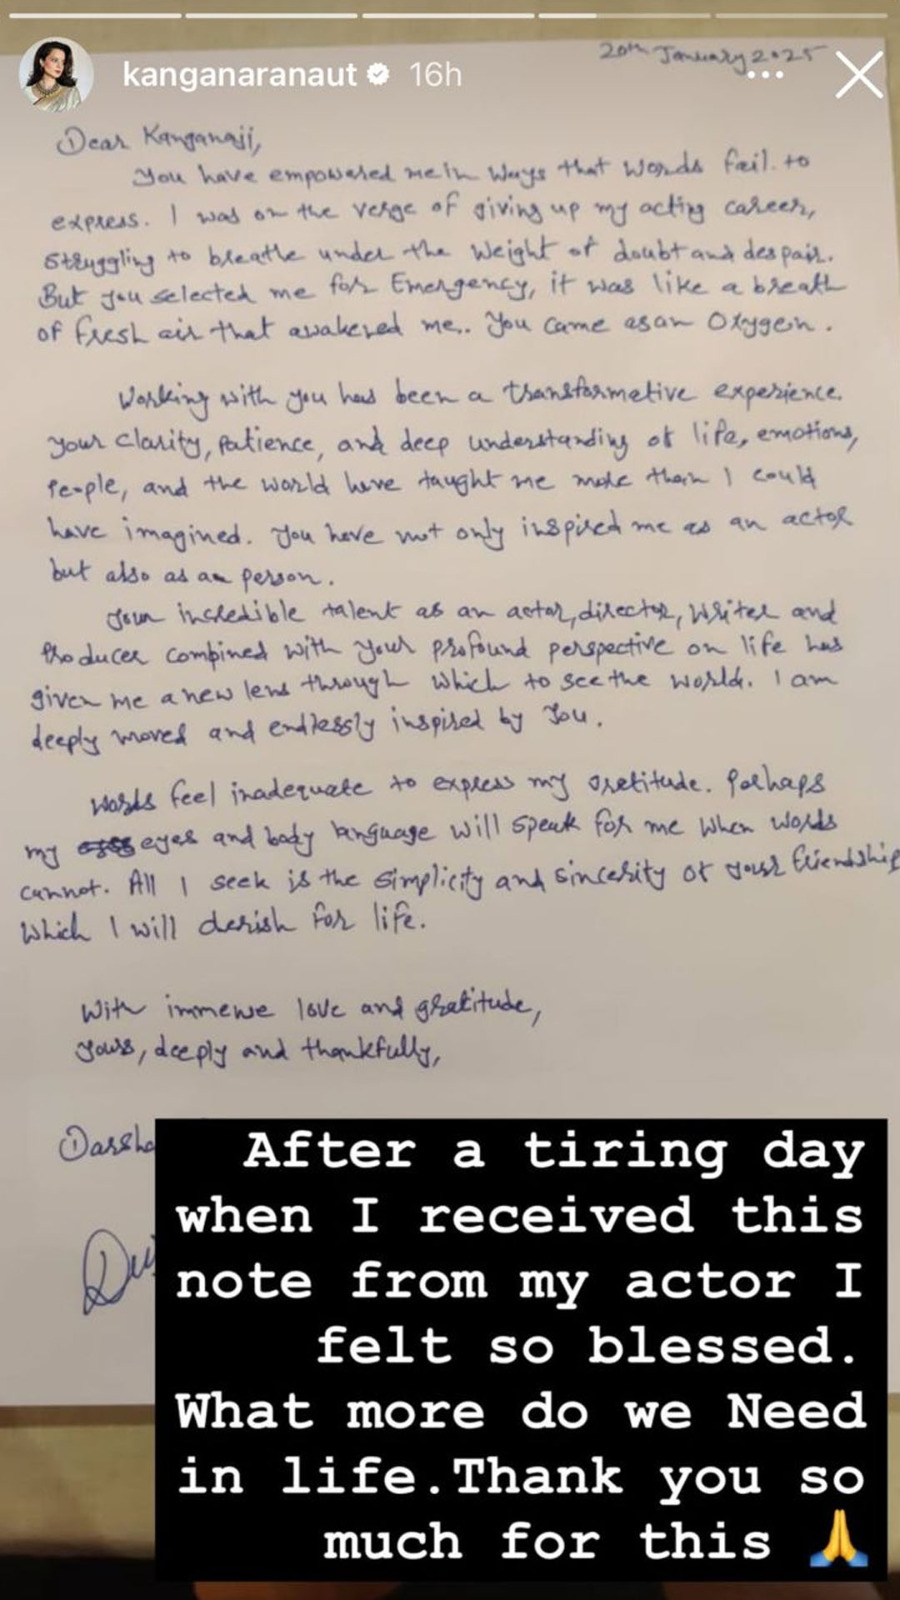 20th January 2025
kanganaranaut 16h
Dear Kanganaji,
You have empowered me in ways that words fail. to
express. I was on the verge of giving up my acting career,
struggling to breathe under the weight of doubt and despair.
But you selected me for Emergency, it was like a breath
of fresh air that awakened me.. You came as an Oxygen.
Working with you has been a transformative experience.
your clarity, patience, and deep understanding of life, emotions,
people, and the world have taught me more than I could
have imagined. You have not only inspired me as an actor
but also as an person.
Your incredible talent as an actor, director, writer and
producer combined with your profound perspective on life has
given me a new lens through which to see the world. I am
deeply moved and endlessly inspired by You.
Words feel inadequate to express my gratitude. Perhaps
my eyes and body language will speak for me when words
cannot. All I seek is the simplicity and sincerity of your friendship
which I will cherish for life.
With immense love and gratitude,
yours, deeply and thankfully,
After a tiring day
when I received this
note from my actor I
felt so blessed.
What more do we Need
in life.Thank you so
much for this 🙏